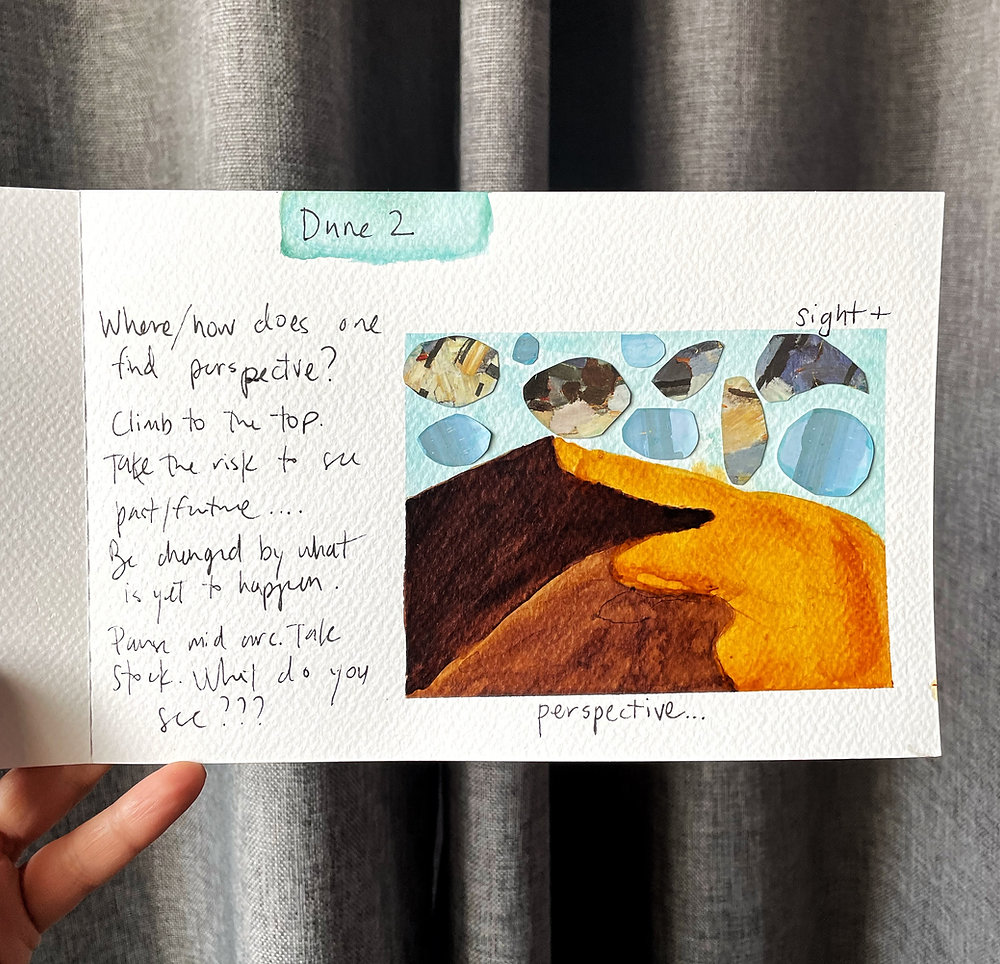 Dune 2
Where/how does one
find perspective?
Climb to the top.
Take the risk to see
past/future....
Be changed by what
is yet to happen.
Pause mid arc. Take
Stock. What do you
see???
sight +
perspective...